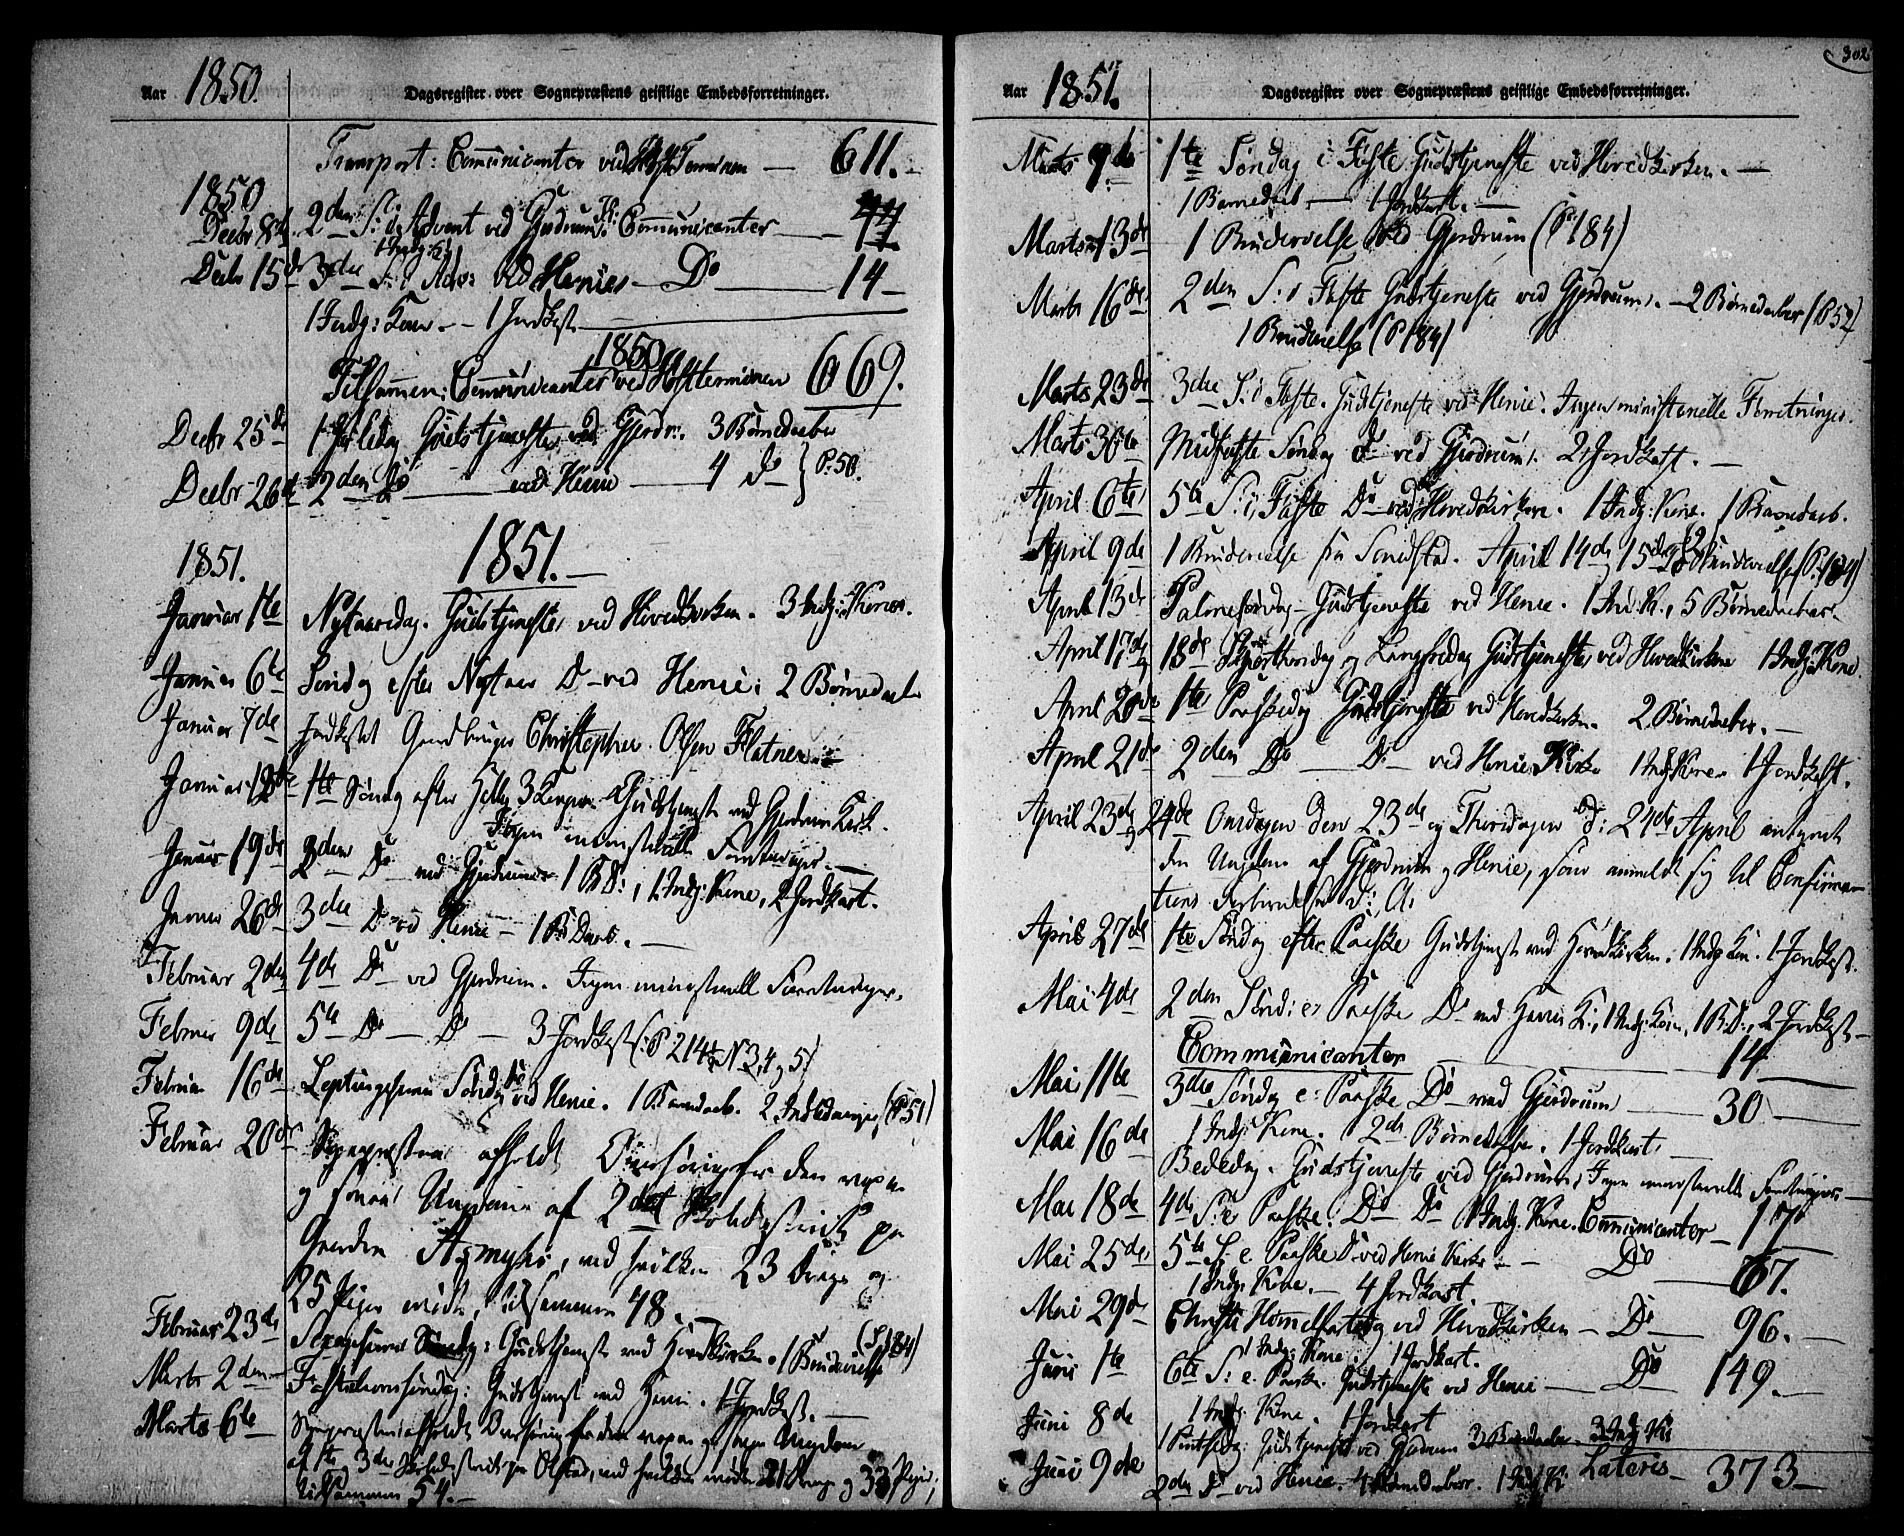 Aar 1850. Dagsregister over Sognepræstens geistlige Embedsforretninger.
Transport: Communicanter ved Høst Terminen — 611.
1850
Decbr 8de 2den S: i Advent ved Gjerdrum Communicanter — 44
1 Indg: K:
Decbr 15de 3die S: i Adv: ved Henie — Do — 14 —
1 Indg: Kone. — 1 Jordkast.
1850
Tilsammen: Communicanter ved Høstterminen 669.
Decbr 25de 1 Juledag Gudstjeneste ved Gjerdr: 3 Børnedaaber
Decbr 26de 2den Do — ved Henie — 4 Do } P. 50.
1851. 1851. —
Januar 1te Nytaarsdag. Gudstjeneste ved Hovedkirken. 3 Indg: Koner.
Januar 6te Søndag efter Nytaar Do — ved Henie: 2 Børnedaab
Januar 7de Jordkastet Gaardbruger Christopher Olsen Flatner
Januar 12te 1te Søndag efter Hellig 3 Konger — Gudstjenest ved Gjerdrum Kirk.
Ingen ministerielle Forretninger. —
Januar 19de 2den Do ved Gjerdrum 1 B.D:, 1 Indg: Kone, 2 Jordkast.
Januar 26de 3die Do ved Henie — 1 B: Daab. —
Februar 2den 4de Do ved Gjerdrum. Ingen ministerielle Forretninger.
Februar 9de 5te Do — Do — 3 Jordkast (P 214 N 3, 4 og 5)
Februar 16de Søndag Do ved Henie. 1 Barnedaab. 2 Indledninger, (P. 51)
Februar 20de Sognepræsten afholdt Overhøring for den voxne
og Ungdom af 2det Skoledistrikt paa
Gaarden, ved hvilken 23 Drenge og
25 Piger mødte, tilsammen 48. —
Februar 23de Søndag: Gudstjeneste ved Hovedkirken. 1 Brudevielse (P. 184)
Marts 2den Fastelavnssøndag: Gudstjenest ved Henie. 1 Jordkast. —
Marts 6te Sognepræsten afholdt Overhøring for den voxne og Ungdom
af 1te og 3die Skoledistrikt paa Olstad, ved hvilken mødte 21 Drenge og 33 Piger,
tilsammen 54. —
302
Aar 1851. Dagsregister over Sognepræstens geistlige Embedsforretninger.
Marts 9de 1te Søndag i Faste Gudstjeneste ved Hovedkirken. —
1 Barnedaab — 1 Jordkast. —
Marts 13de 1 Brudevielse ved Gjerdrum (P 184)
Marts 16de 2den S: i Faste Gudstjeneste ved Gjerdrum. — 2 Børnedaaber (P 52)
1 Brudevielse (P 184)
Marts 23de 3die S: i Faste. Gudstjeneste ved Henie. Ingen ministerielle Forretninger.
Marts 30te Midfaste Søndag Do ved Gjerdrum. 2 Jordkast. —
April 6te 5te S: i Faste Do — ved Hovedkirken. 1 Indg: Kone. 1 Barnedaab.
April 9de 1 Brudevielse fra. April 14de, 15de 2 Brudevielse (P. 184)
April 13de Palmesøndag — Gudstjeneste ved Henie. 1 Ind. K., 5 Børnedaaber.
April 17de og 18de Skjærthorsdag og Langfredag Gudstjeneste ved Hovedkirken 1 Indg: Kone
April 20de 1te Paaskedag Gudstjeneste ved Hovedkirken. 2 Børnedaaber. —
April 21de 2den Do — Do — ved Henie Kirke 1 Indg: Kone 1 Jordkast.
April 23de og 24de Onsdagen den 23de og Thorsdagen d: 24de April antegnet
den Ungdom af Gjerdrum og Henie, som anmeldt sig til Confirma-
tions Forberedelse d: A:
April 27de 1te Søndag efter Paaske Gudstjenest ved Hovedkirken. 1 Indg Kon. 1 Jordkast.
Mai 4de 2den Sønd: e: Paaske Do ved Henie K:, 1 Indg: Kone, 1 B.D:, 2 Jordkast —
Communicanter 14
Mai 11te 3die Søndag e: Paaske Do ved Gjerdrum — 30 —
1 Indg: Kone. 2de Børnedaaber. 1 Jordkast. —
Mai 16de Bededag. Gudstjeneste ved Gjerdrum, Ingen ministerielle Forretninger —
Mai 18de 4de S: e Paaske. Do Do 1 Indg. Kone. Communicanter — 17
Mai 25de 5te S: e. Paaske Do ved Henie Kirke — Do — 67.
1 Indg: Kone. — 4 Jordkast.
Mai 29de Christi Himmelfartsdag ved Hovedkirken — Do — 96. —
1 Indg: Kone 1 Jordkast.
Juni 1te 6te S: e. Paaske. Gudstjeneste ved Henie — Do — 149. —
1 Indg. Kone. 1 Jordkast
Juni 8de 1 Pintsedag: Gudstjeneste ved Gjerdrum 3 Børnedaaber. 3 Indg Ko
Juni 9de 2den Do — ved Henie. 4 Børnedaaber. 1 Ind: K: Lateris — 373 —